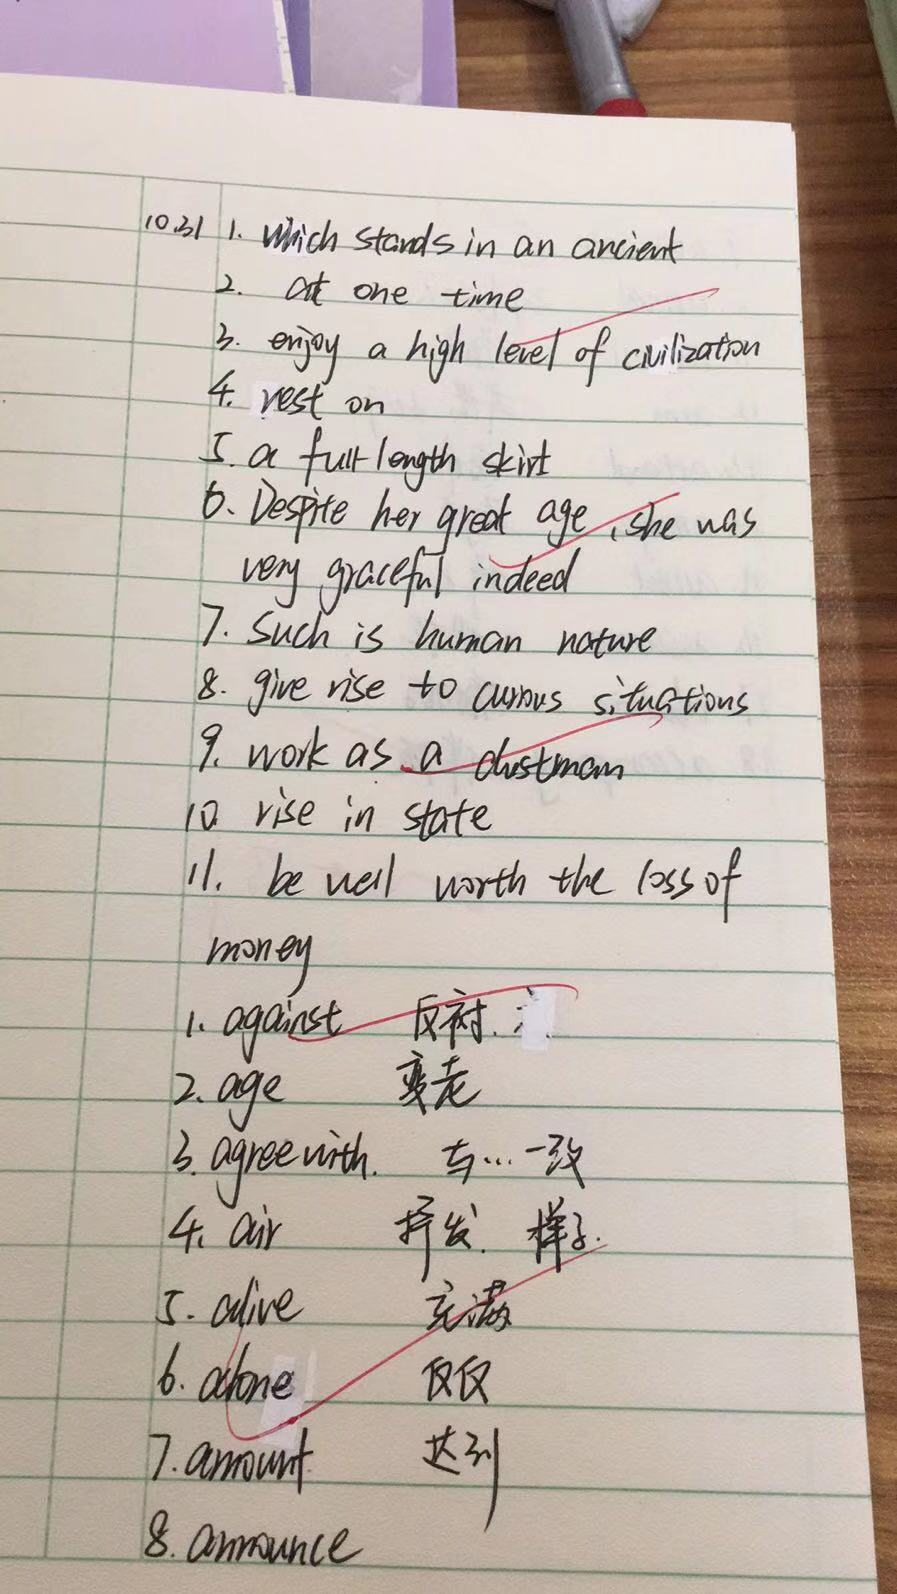 10.31 1. which stands in an ancient
2. at one time
3. enjoy a high level of civilization
4. rest on
5. a full length skirt
6. Despite her great age, she was
very graceful indeed
7. Such is human nature
8. give rise to curious situations
9. work as a dustman
10. rise in state
11. be well worth the loss of
money
1. against 反衬.
2. age 变老
3. agree with. 与...一致
4. air 抒发. 样子.
5. alive 充满
6. alone 仅仅
7. amount 达到
8. announce